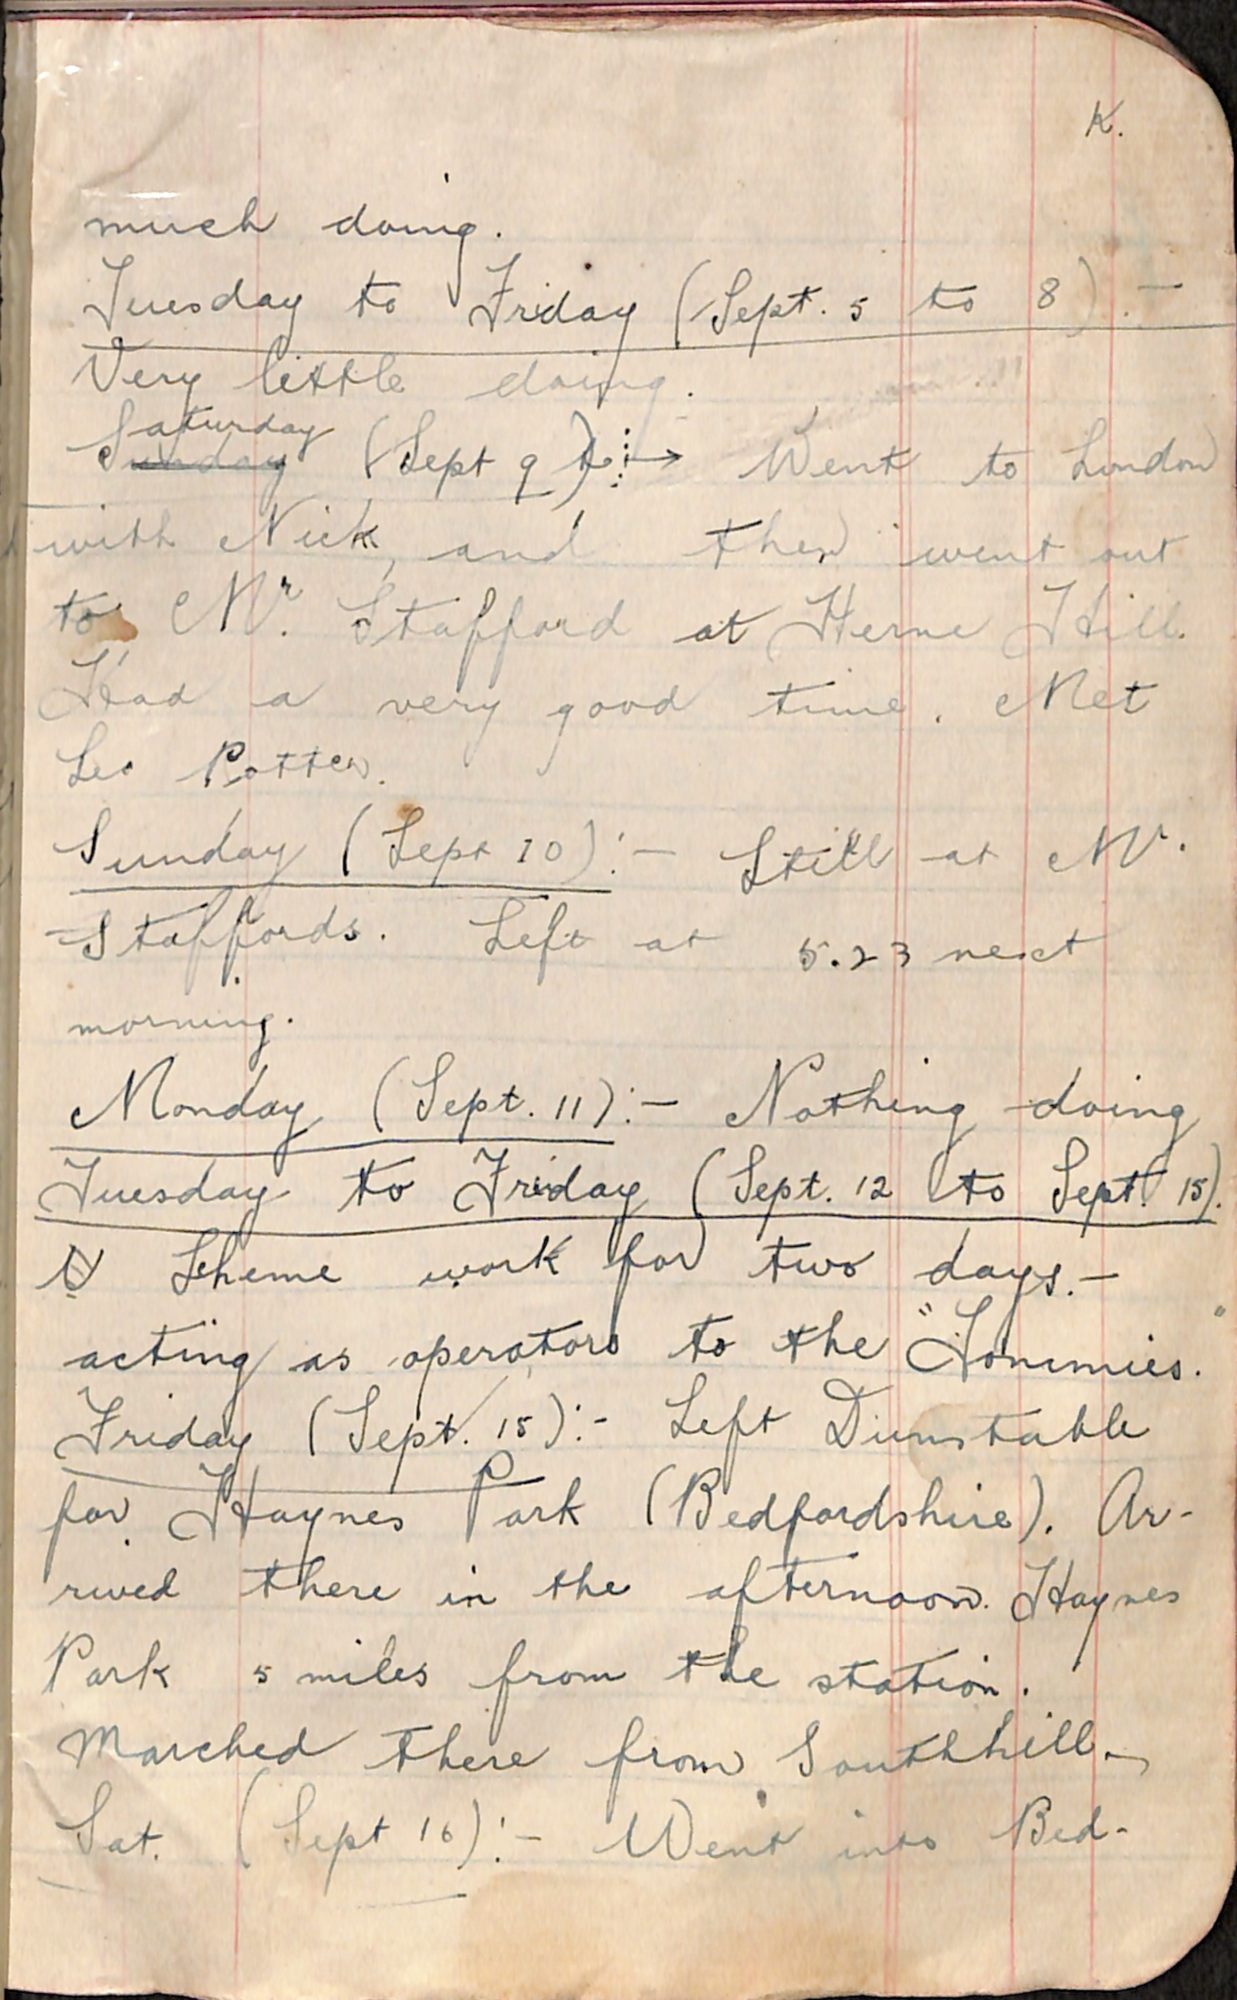 K.
much doing.
Tuesday to Friday (Sept. 5 to 8) :-
Very little doing.
Saturday
Sunday (Sept 9) :→ Went to London
with Nick, and then went out
to Mr. Stafford at Herne Hill.
Had a very good time. Met
Leo Potter.
Sunday (Sept 10) :- Still at Mr.
Staffords. Left at 5.23 next
morning.
Monday (Sept. 11) :- Nothing doing
Tuesday to Friday (Sept. 12 to Sept. 15).
Scheme work for two days. -
acting as operators to the "Tommies."
Friday (Sept. 15) :- Left Dunstable
for Haynes Park (Bedfordshire). Ar-
rived there in the afternoon. Haynes
Park 5 miles from the station.
Marched there from Southhill.
Sat. (Sept 16) :- Went into Bed-